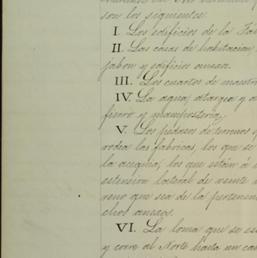 son los siguientes:
I. Los edificios de la Fá
II. Las casas de habitacion
jabon y edificios anexos.
III. Los cuartos de maestro
IV. La agua, atargia y
fierro y mampostería,
V. Los pedazos de terrenos
rodea las fábricas, los que se
la acequia, los que están á
estension lateral de veinte
reno que sea de la pertenen
chos anexos.
VI. La loma que se es
y corre al Norte hasta un ca